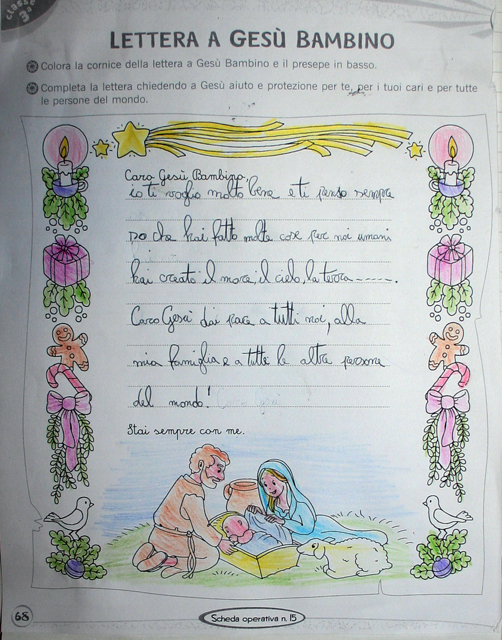 CLASSE 3ª
LETTERA A GESÙ BAMBINO
Colora la cornice della lettera a Gesù Bambino e il presepe in basso.
Completa la lettera chiedendo a Gesù aiuto e protezione per te, per i tuoi cari e per tutte
le persone del mondo.
Caro Gesù Bambino,
io ti voglio molto bene e ti penso sempre
po che hai fatto molte cose per noi umani
hai creato il mare, il cielo, la terra-----.
Caro Gesù dai pace a tutti noi, alla
mia famiglia e a tutte le altre persone
del mondo!
Stai sempre con me.
68
Scheda operativa n. 15